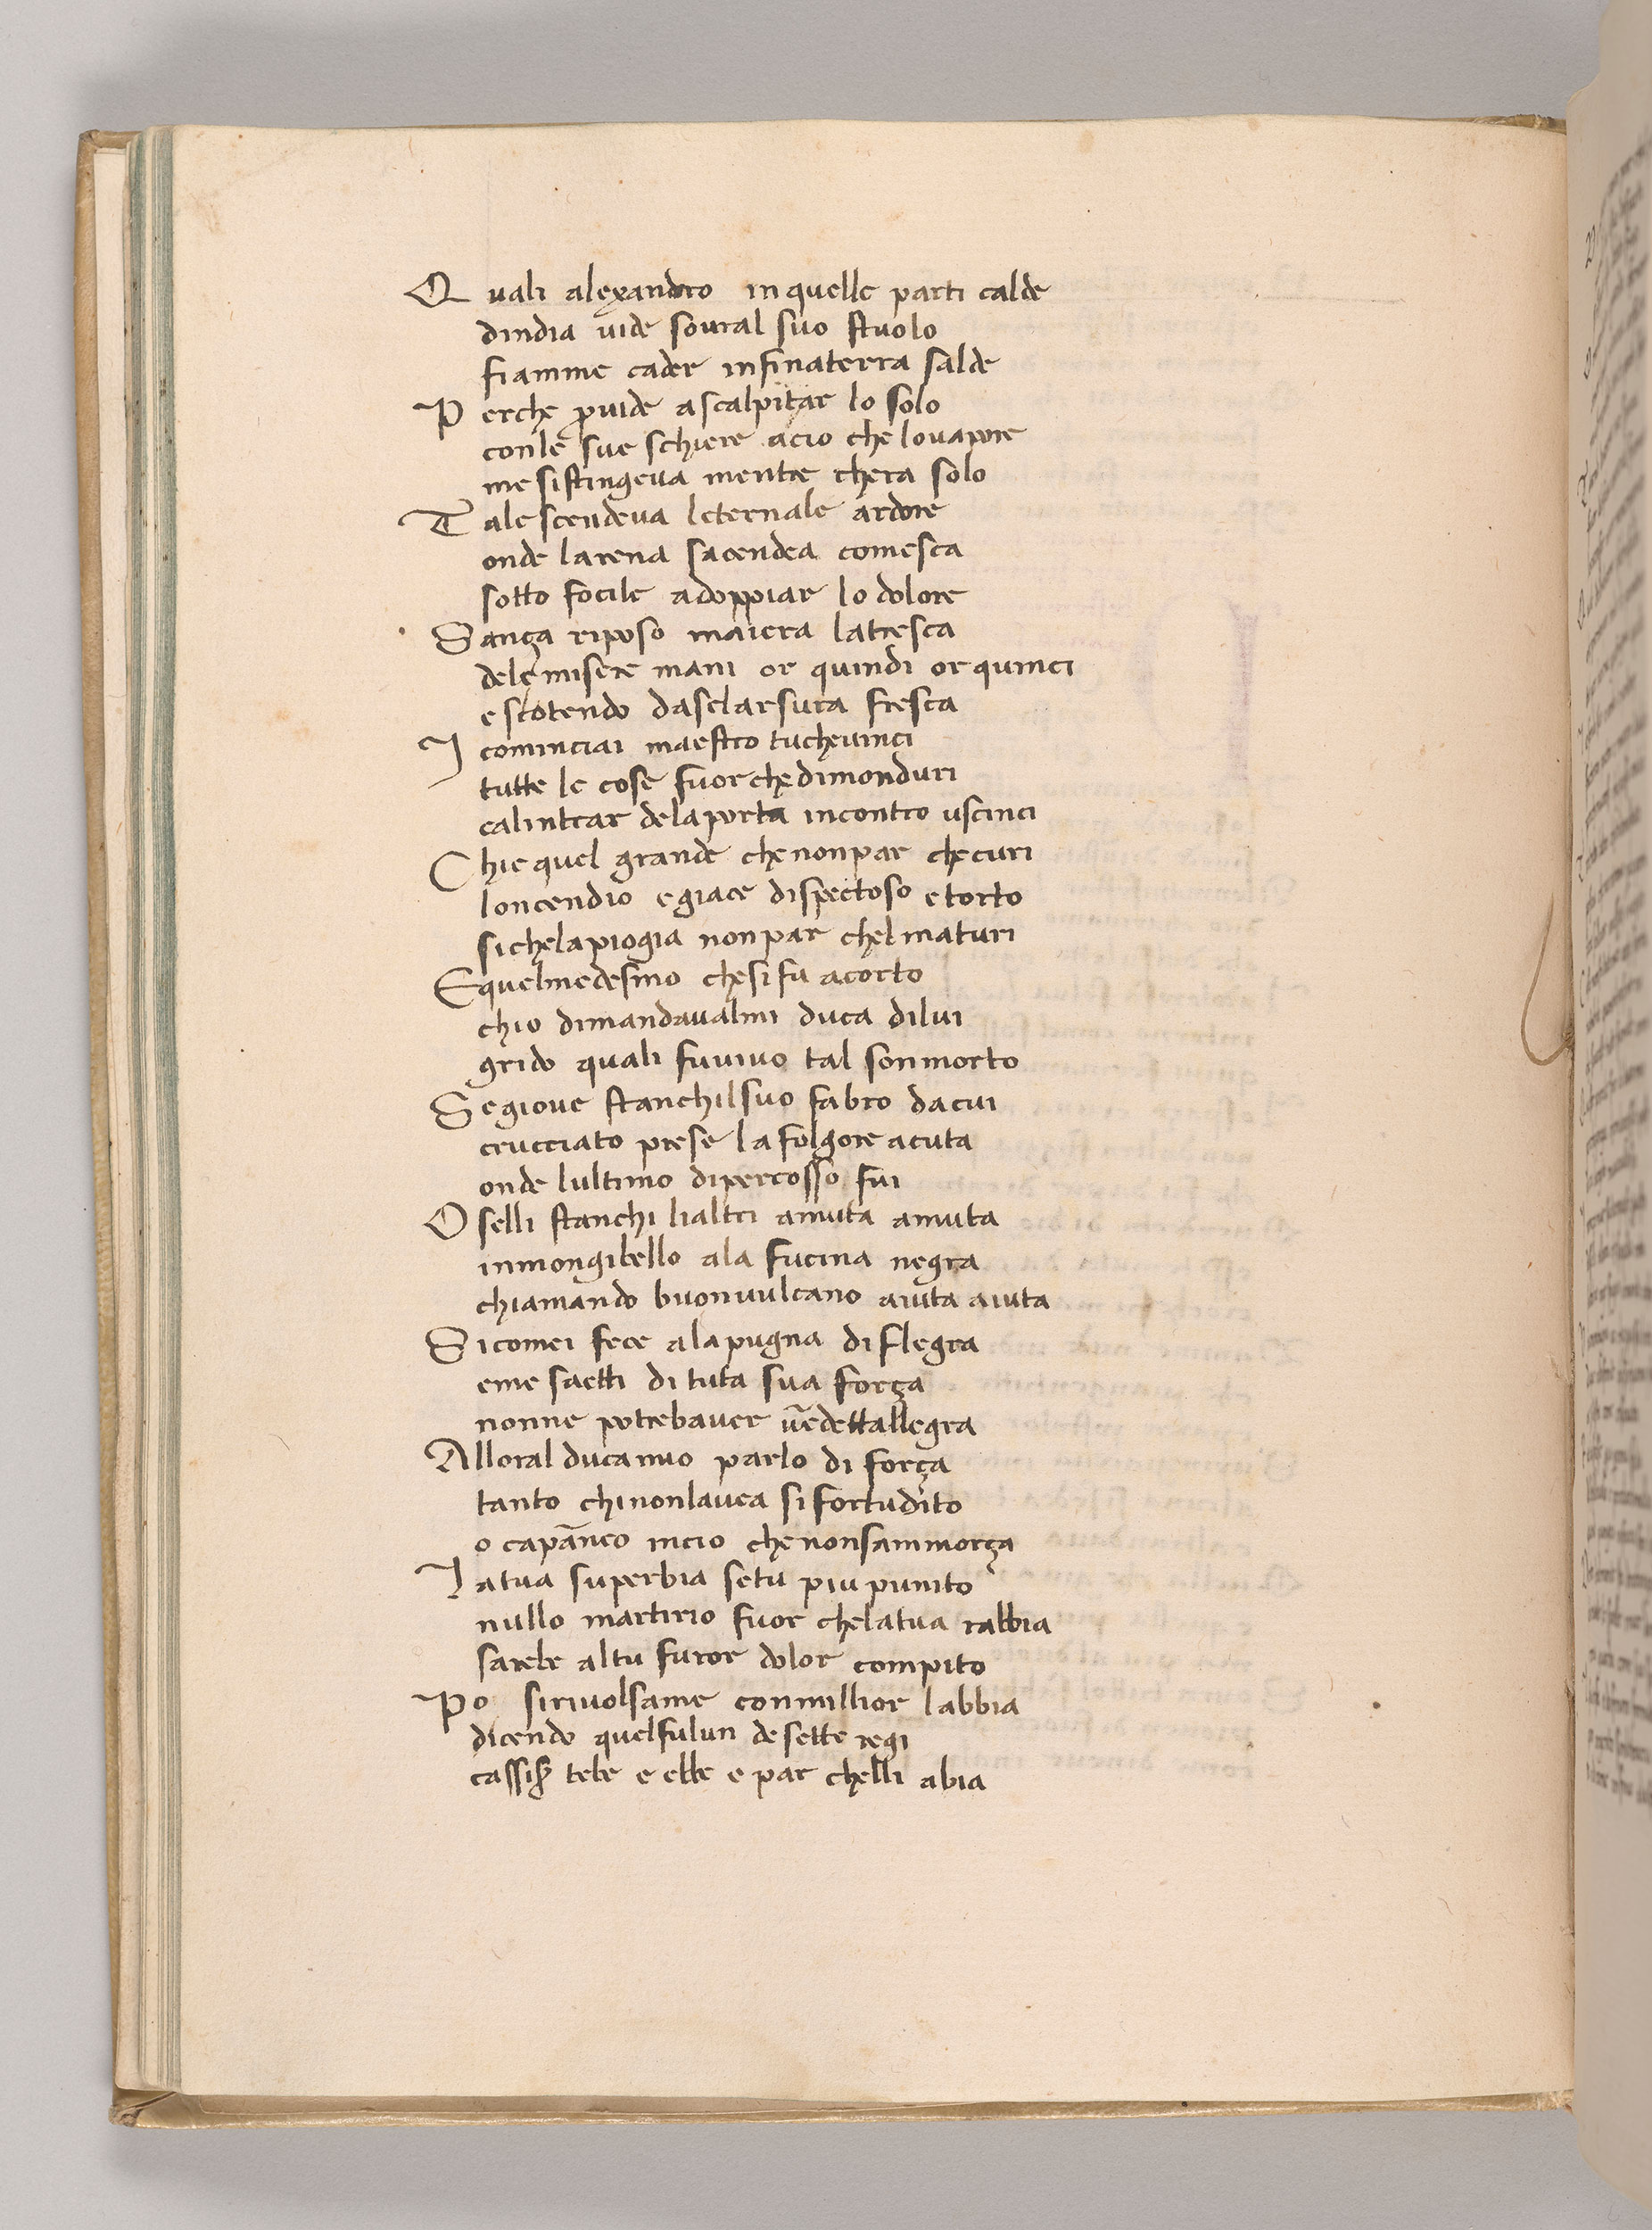 Quali alexandro in quelle parti calde
dindia vide soural suo stuolo
fiamme cader infinaterra salde
Perche p̱vide a scalpitar lo solo
conle sue schiere acio che lovapore
me sistingeva mentre chera solo
Tale scendeva leternale ardore
onde larena sacendea comesca
sotto focile adoppiar lo dolore
Sança riposo maiera latresca
dele misere mani or quindi or quinci
escotendo daselarsura fresca
I cominciai maestro tuchevinci
tutte le cose fuorchedimonduri
calintrar delaporta incontro uscinci
Chie quel grande chenonpar checuri
loncendio egiace dispectoso etorto
sichelapiogia nonpar chelmaturi
Equelmedesmo chesi fu acorto
chio dimandavalmi duca dilui
grido quali fuvivo tal sonmorto
Segiove stanchilsuo fabro dacui
crucciato prese la folgore acuta
onde lultimo dipercosso fui
Oselli stanchi lialtri amuta amuta
inmongibello ala fucina negra
chiamando buonvulcano aiuta aiuta
Sicomei fece alapugna diflegra
eme saetti di tuta sua força
nonne potrebaver vēdettallegra
Alloral ducamio parlo di força
tanto chinonlavea sifortudito
o capāneo incio chenonsammorça
Iatua superbia setu piu punito
nullo martirio fuor chelatua rabbia
sarebe altu furor dolor compito
Po sirivolsame conmillior labbia
dicendo quelfulun de sette regi
cassiſ tebe e ebbe e par chelli abia